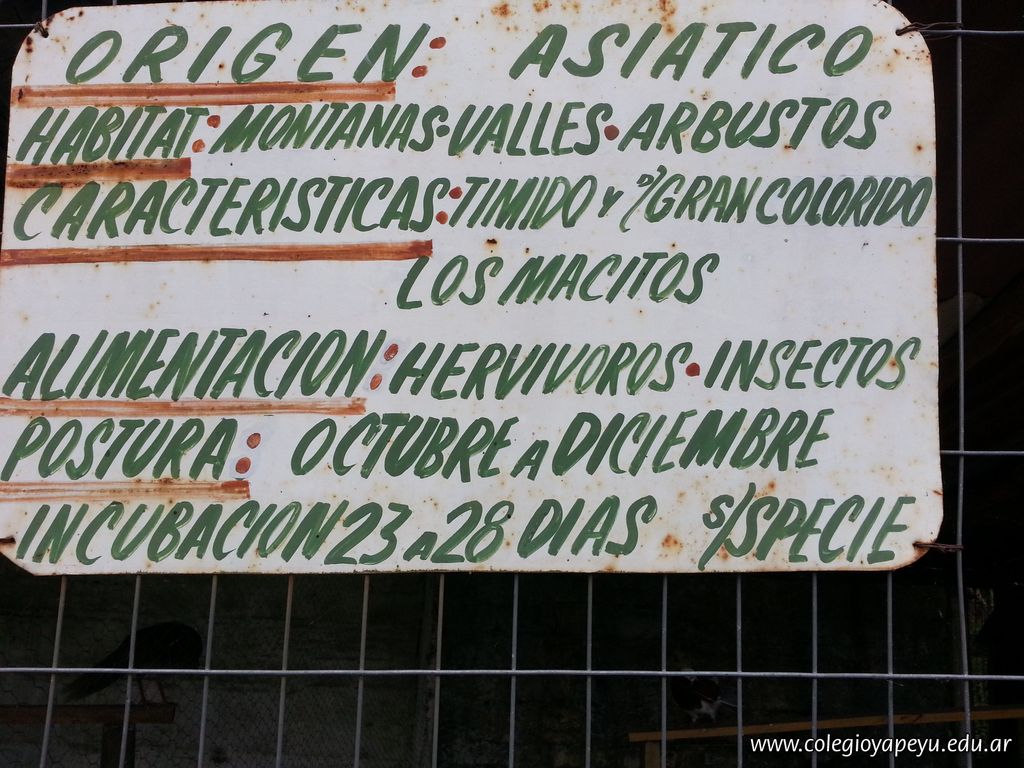 ORIGEN: ASIATICO
HABITAT: MONTANAS·VALLES·ARBUSTOS
CARACTERISTICAS: TIMIDO Y D/GRAN COLORIDO
LOS MACITOS
ALIMENTACION: HERVIVOROS·INSECTOS
POSTURA: OCTUBRE A DICIEMBRE
INCUBACION 23 A 28 DIAS S/SPECIE
www.colegioyapeyu.edu.ar